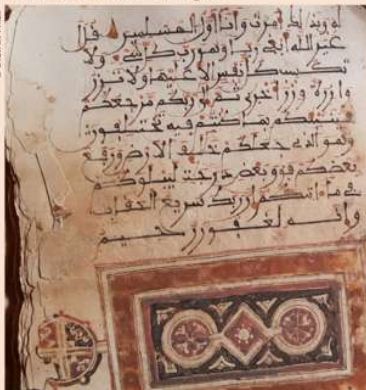 له وبذلك امرت وانا اول المسلمين قل
اغير الله ابغى ربا وهو رب كل شىء ولا
تكسب كل نفس الا عليها ولا تزر
وازرة وزر اخرى ثم الى ربكم مرجعكم
فينبئكم بما كنتم فيه تختلفون
وهو الذى جعلكم خلئف الارض ورفع
بعضكم فوق بعض درجت ليبلوكم
فى ما اتيكم ان ربك سريع العقاب
وانه لغفور رحيم